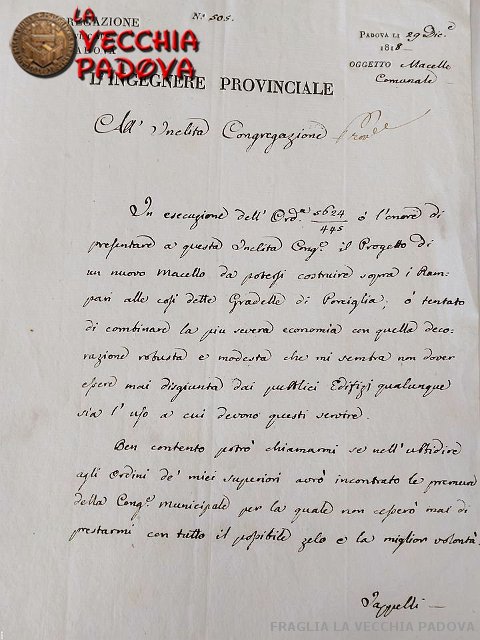 LA
VECCHIA
PADOVA
REGAZIONE
N.º 505.
PADOVA LI 29 Dic.e
1818
OGGETTO Macello
Comunale
L'INGEGNERE PROVINCIALE
All' Inclita Congregazione
In esecuzione dell' Ord.a 5624/445 ó l'onore di
presentare a questa Inclita Cong.e il Progetto di
un nuovo Macello da potersi costruire sopra i Ram-
pari alle così dette Gradelle di Porciglia; ó tentato
di combinare la piu severa economia con quella deco-
razione robusta e modesta che mi sembra non dover
essere mai disgiunta dai pubblici Edifizj qualunque
sia l'uso a cui devono questi servire.
Ben contento potrò chiamarmi se nell'ubbidire
agli Ordini de' miei superiori avrò incontrato le premure
della Cong.e Municipale per la quale non cesserò mai di
prestarmi con tutto il possibile zelo e la miglior volontà.
Jappelli
FRAGLIA LA VECCHIA PADOVA